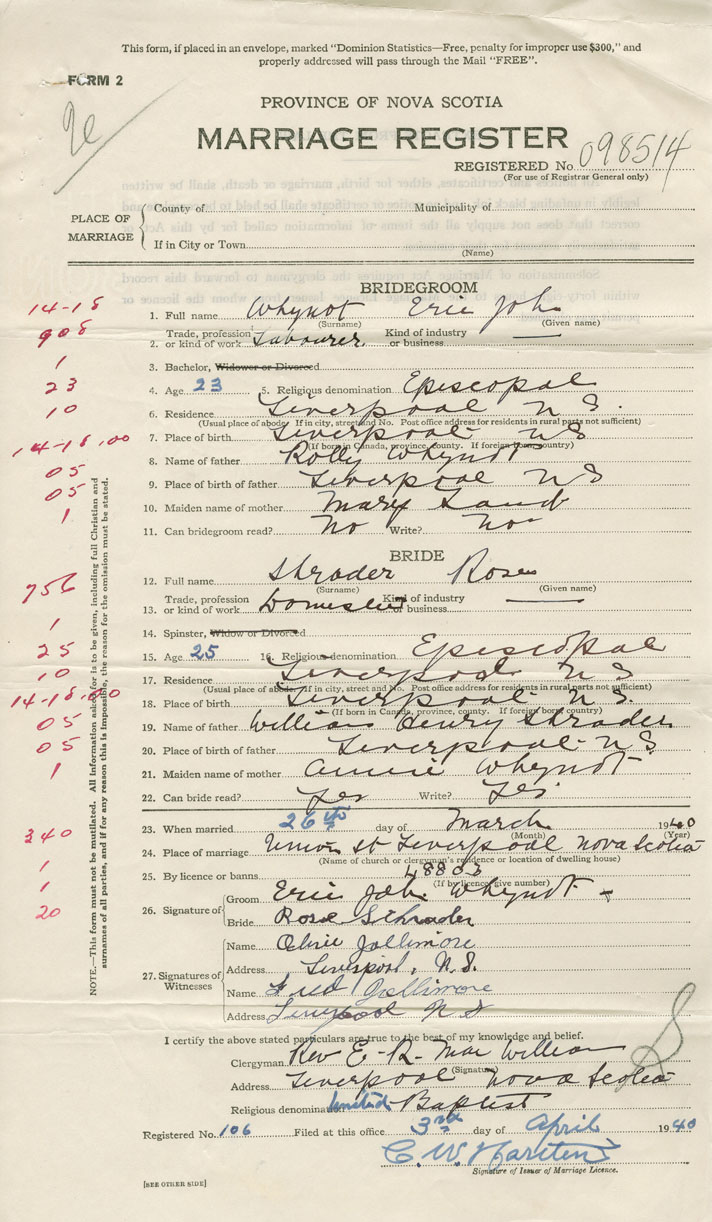 This form, if placed in an envelope, marked "Dominion Statistics—Free, penalty for improper use $300," and
properly addressed will pass through the Mail "FREE".
FORM 2
PROVINCE OF NOVA SCOTIA
MARRIAGE REGISTER
REGISTERED No. 098514
(For use of Registrar General only)
PLACE OF MARRIAGE
County of Municipality of
If in City or Town
(Name)
BRIDEGROOM
14-18
1. Full name Whynot Eric John
(Surname) (Given name)
908
Trade, profession Kind of industry
2. or kind of work Labourer or business —
1
3. Bachelor, Widower or Divorced
23
4. Age 23 5. Religious denomination Episcopal
10
6. Residence Liverpool N S.
(Usual place of abode. If in city, street and No. Post office address for residents in rural parts not sufficient)
14-18.00
7. Place of birth Liverpool N S
(If born in Canada, province, county. If foreign born, country)
05
8. Name of father Rolly Whynot
05
9. Place of birth of father Liverpool N S
1
10. Maiden name of mother Mary
11. Can bridegroom read? No Write? No
BRIDE
756
12. Full name Shrader Rose
(Surname) (Given name)
Trade, profession Kind of industry
13. or kind of work Domestic or business —
1
14. Spinster, Widow or Divorced
25
15. Age 25 16. Religious denomination Episcopal
10
17. Residence Liverpool N S
(Usual place of abode. If in city, street and No. Post office address for residents in rural parts not sufficient)
14-18.00
18. Place of birth Liverpool N S.
(If born in Canada, province, county. If foreign born, country)
05
19. Name of father William Henry Shrader
05
20. Place of birth of father Liverpool N S.
1
21. Maiden name of mother Annie Whynot
22. Can bride read? Yes Write? Yes
23. When married 26th day of March 1940
(Month) (Year)
340
24. Place of marriage Union St Liverpool Nova Scotia
(Name of church or clergyman's residence or location of dwelling house)
1
25. By licence or banns 48803
(If by licence give number)
1
20
26. Signature of
Groom Eric John Whynot
Bride Rose Schrader
27. Signatures of Witnesses
Name Jollimore
Address Liverpool, N.S.
Name Fred Jollimore
Address Liverpool N S
I certify the above stated particulars are true to the best of my knowledge and belief.
Clergyman Rev E. R. Mac William
(Signature)
Address Liverpool Nova Scotia
Religious denomination United Baptist
Registered No. 106 Filed at this office 3rd day of April 1940
Signature of Issuer of Marriage Licence.
[SEE OTHER SIDE]
NOTE.—This form must not be mutilated. All information asked for is to be given, including full Christian and
surnames of all parties, and if for any reason this is impossible, the reason for the omission must be stated.